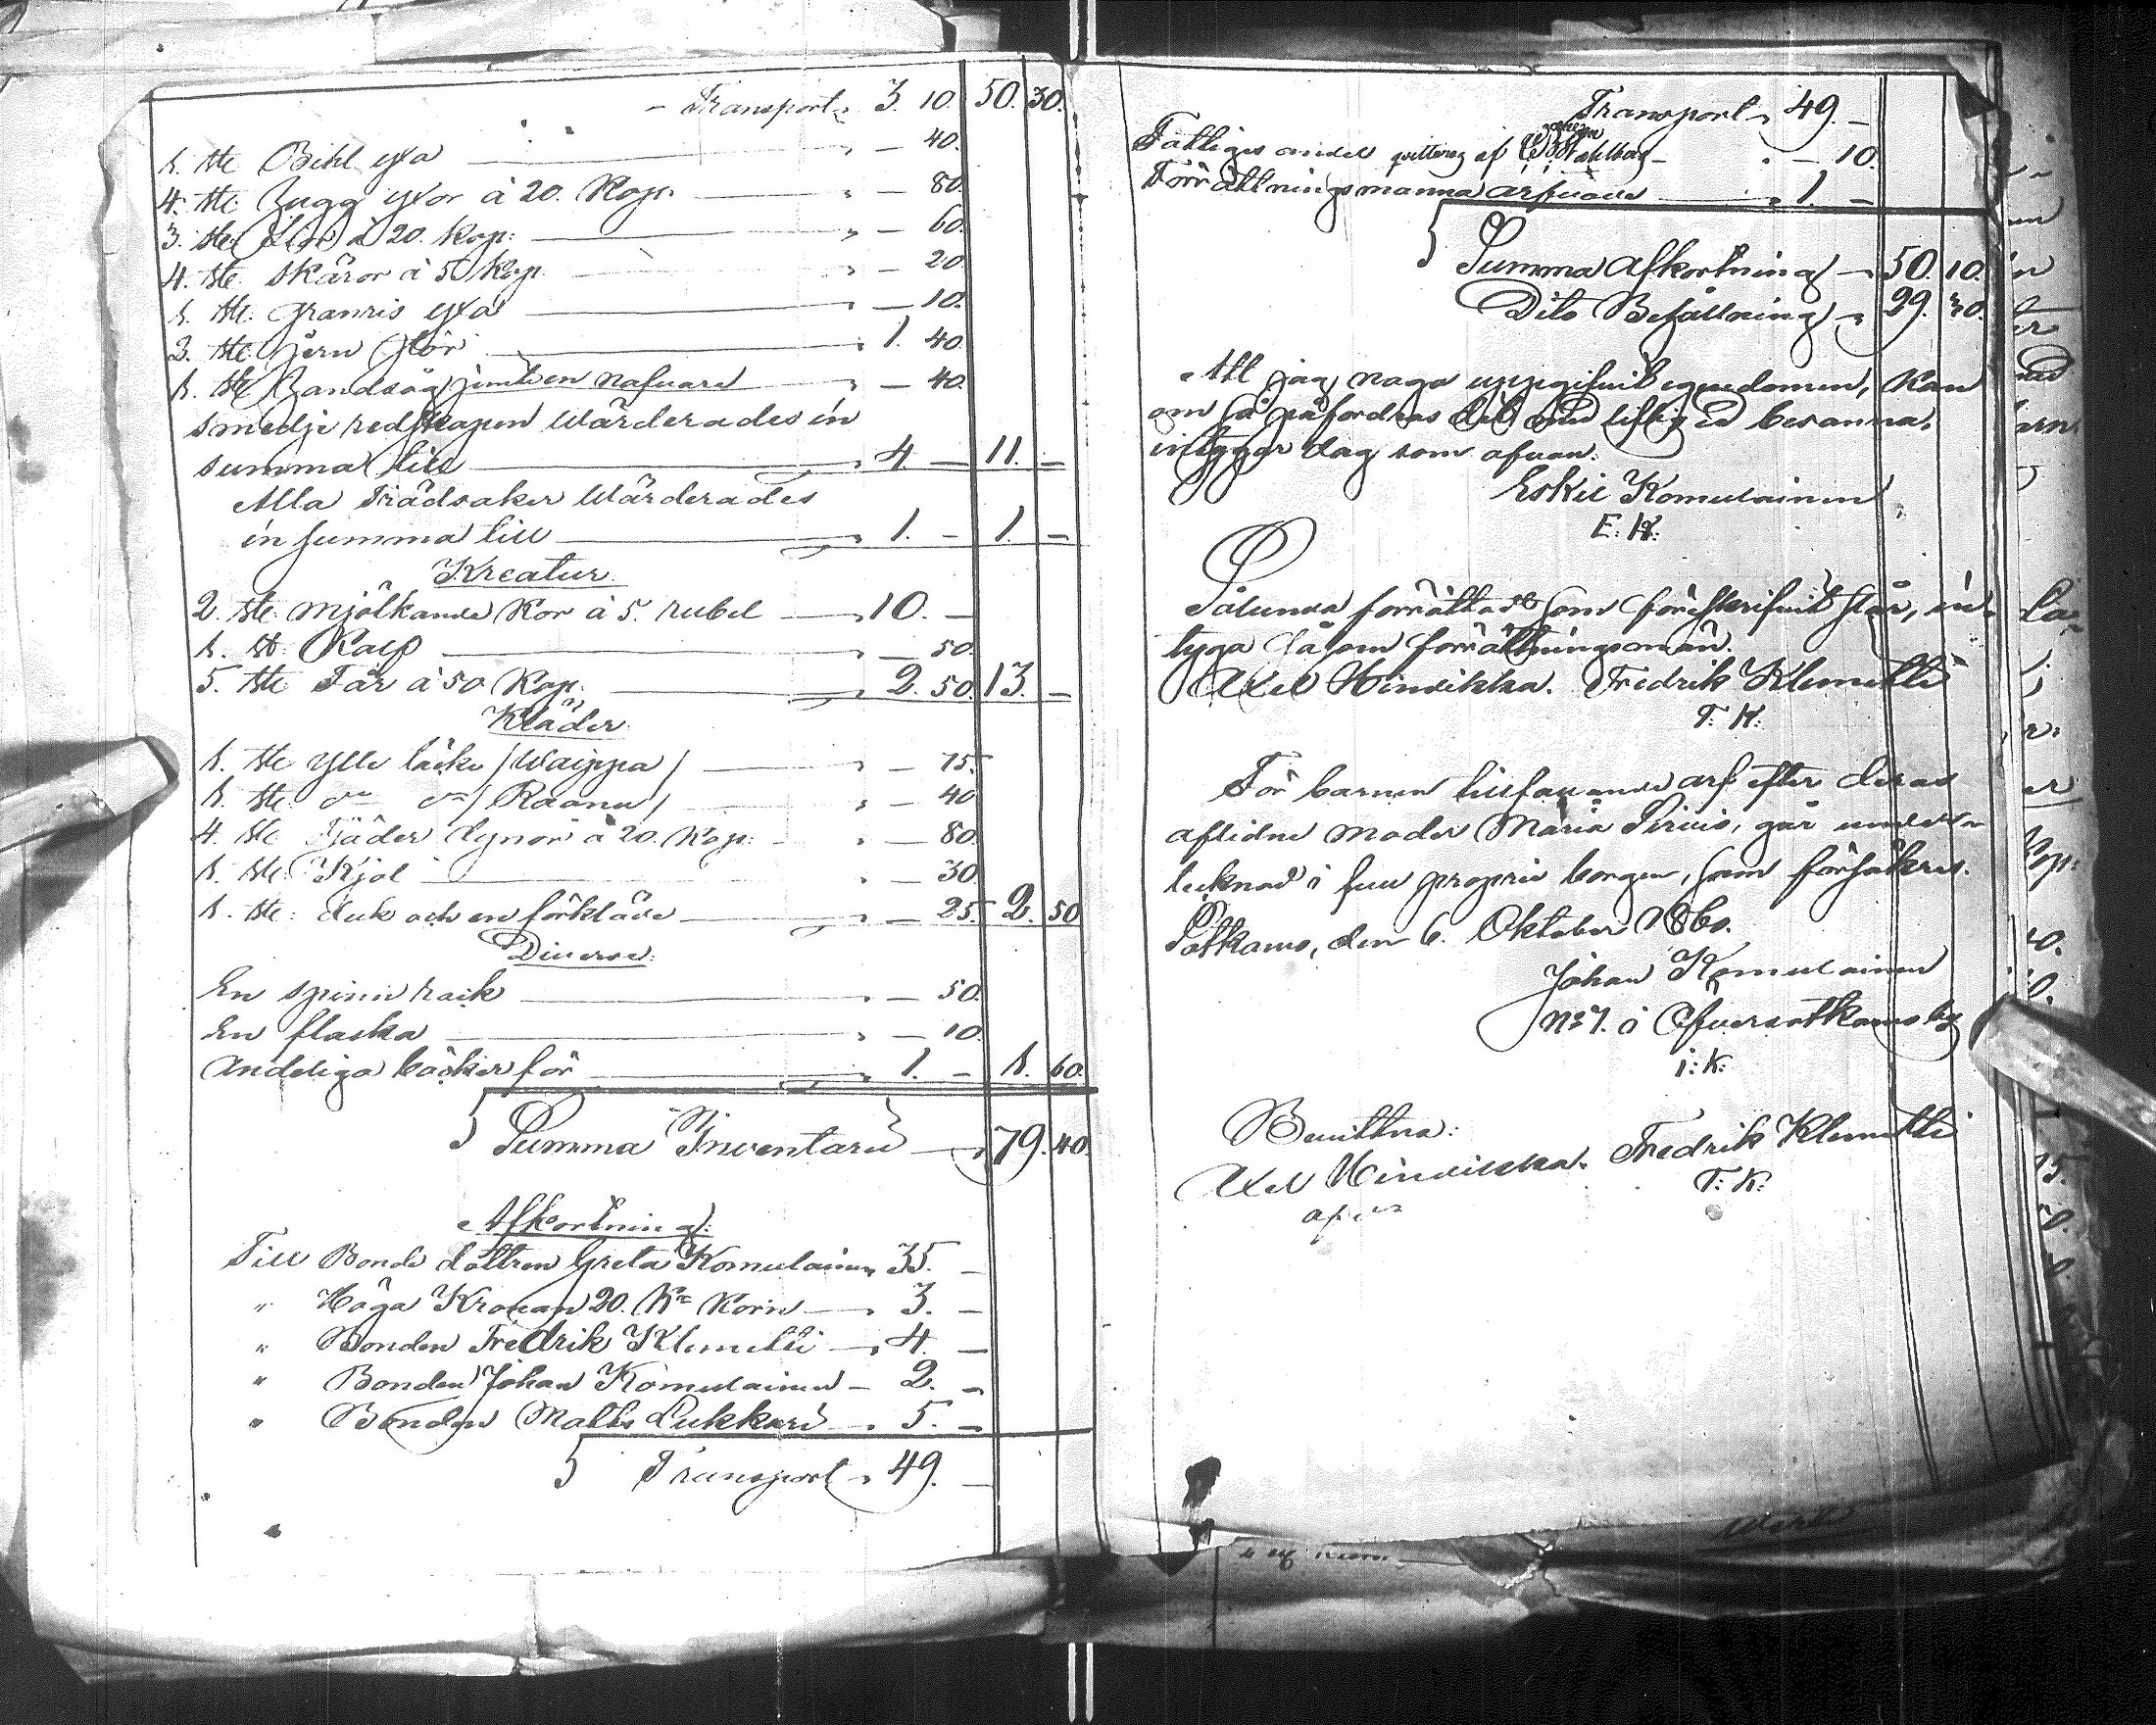 Transport 3. 10. 50. 30.
1. st: Bihl yxa — 40.
4. st: Hugg yxor à 20. Kop. — 80.
3. st: à 20. Kop: — 60.
4. st: skäror à 5 Kop. — 20.
1. st: granris yxa — 10.
2. st: jern 1. 40.
1. st: Handsåg jemte en nafvare — 40.
smedje redskapen Wärderades in
summa till 4. — 11. —
Alla Trädsaker Wärderades
in summa till 1. — 1. —
Kreatur.
2. st: mjölkande Kor à 5. rubel 10. —
1. st: Kalf — 50.
5. st: Får à 50. Kop. 2. 50. 13. —
Kläder
1. st: ylle täcke / Waippa / — 75.
1. st: do do / Raanu / — 40.
4. st: Fjäder dynor à 20. Kop: — 80.
1. st: Kjol — 30.
1. st: duk och en förkläde — 25. 2. 50.
Diverse.
En spinnrack — 50.
En flaska — 10.
Andeliga böcker för 1. — 1. 60.
Summa Inventarii 79. 40.
Afkortning:
Till Bonde dottren Greta Komulainen 35. —
" Höga Kronan 20. Kr Korn 3. —
" Bonden Fredrik Klemetti 4. —
" Bonden Johan Komulainen 2. —
" Bonden Matts Lukkari 5. —
Transport 49. —
Transport 49. —
Fattiges andel af Wahlberg — 10.
Förrättningsmanna arfvode 1. —
Summa Afkortning 50. 10.
Dito Behållning 29. 30.
Att jag noga uppgifvit egendomen, kan
om så påfordras det med liflig Ed besanna,
intygar dag som ofvan.
Eskil Komulainen
E. K.
Sålunda förrättadt som föreskrifvit står, in-
tyga såsom förrättningsmän.
Axel Hindikka. Fredrik Klemetti
F. K.
För barnen tillfallande arf efter deras
aflidne moder Maria Sirviö, går under-
tecknad i full proprie borgen, som försäkres.
Sotkamo, den 6. Oktober 1860.
Johan Komulainen
No 7. i Öfversotkamo by
I: K:
Bevittna:
Axel Hindikka. Fredrik Klemetti
F: K: